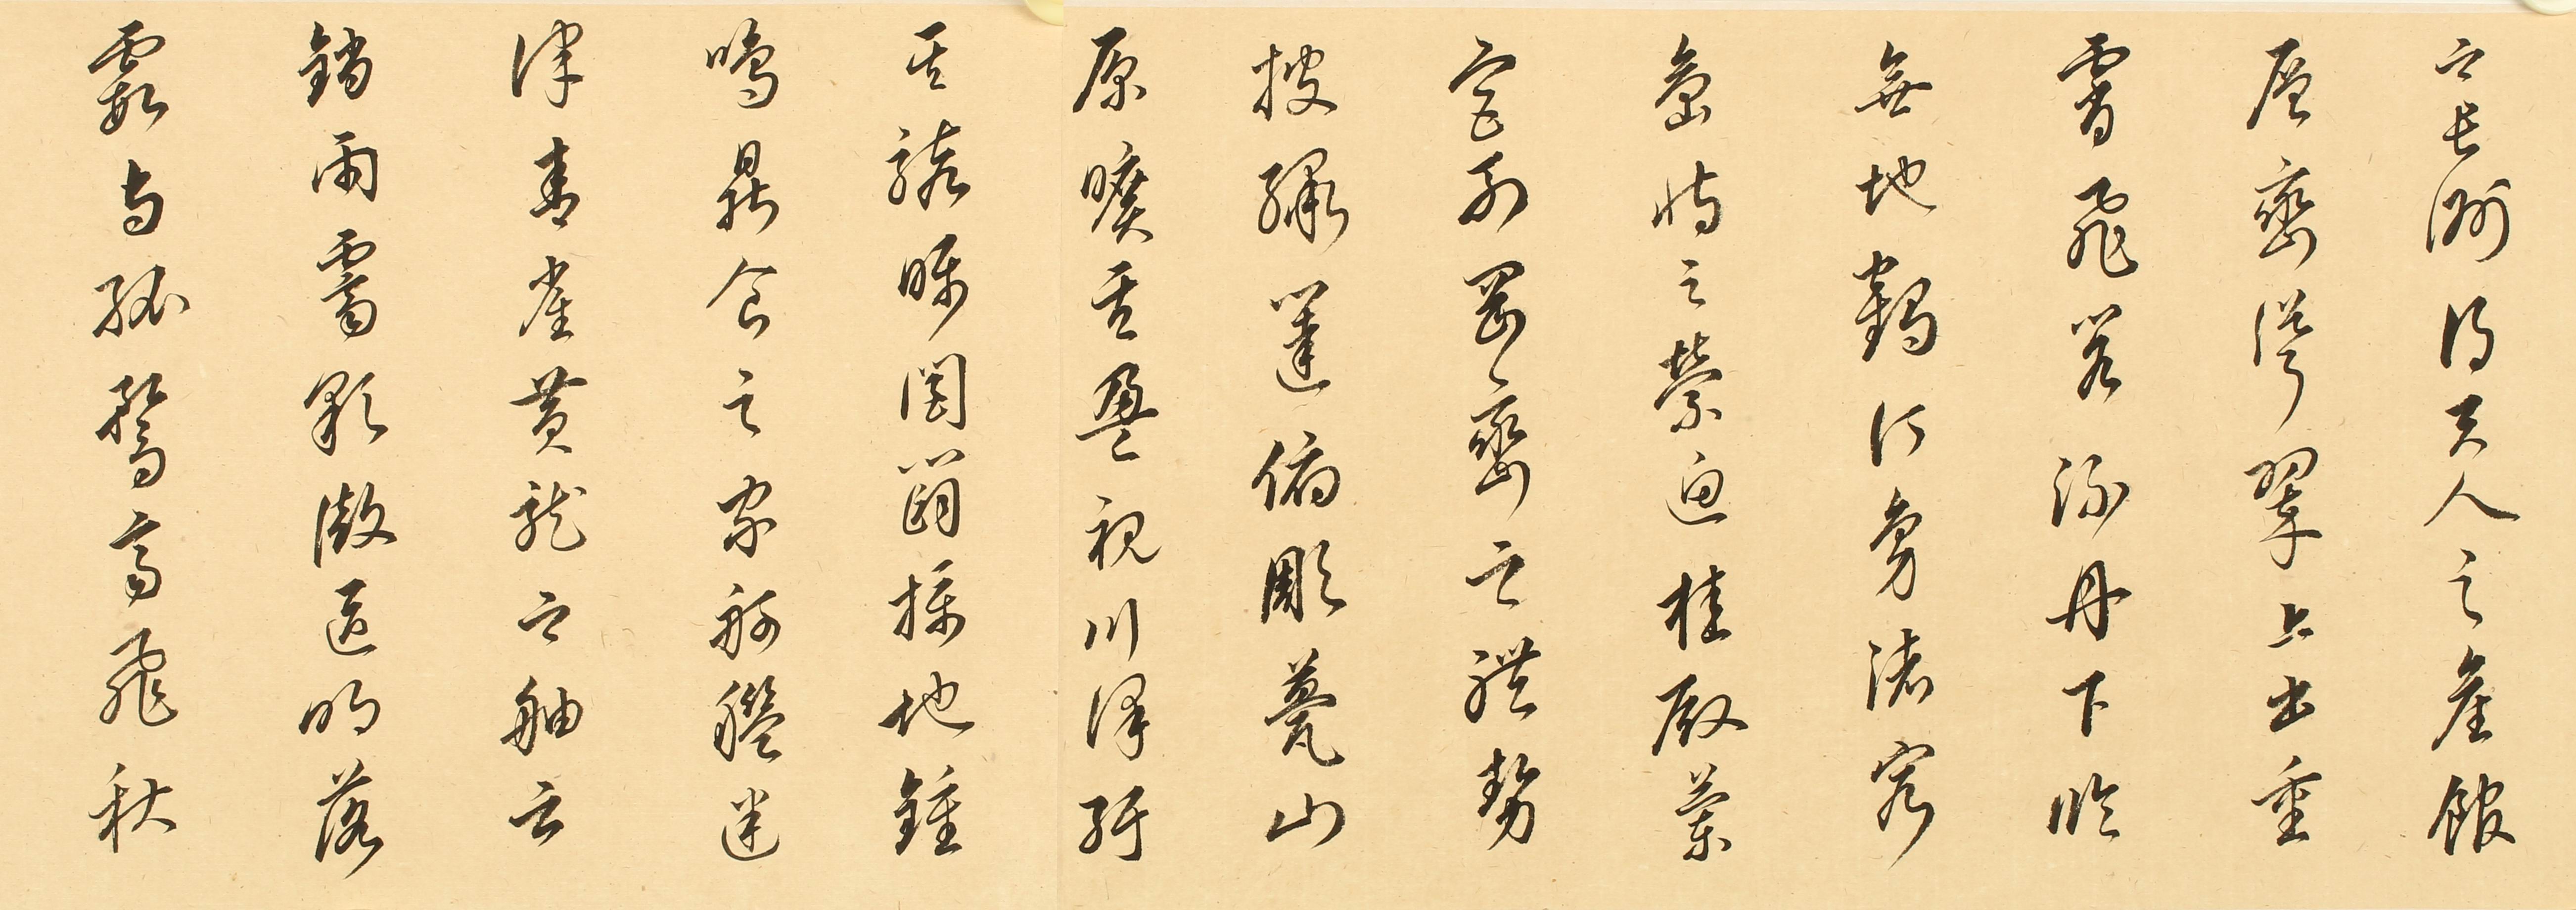 之長洲得天人之舊館
層巒聳翠上出重
霄飛閣流丹下臨
無地鶴汀鳧渚窮
島嶼之縈迴桂殿蘭
宮列岡巒之體勢
披繡闥俯彫甍山
原曠其盈視川澤紆
其駭矚閭閻撲地鍾
鳴鼎食之家舸艦迷
津青雀黃龍之舳雲
銷雨霽彩徹區明落
霞與孤鶩齊飛秋